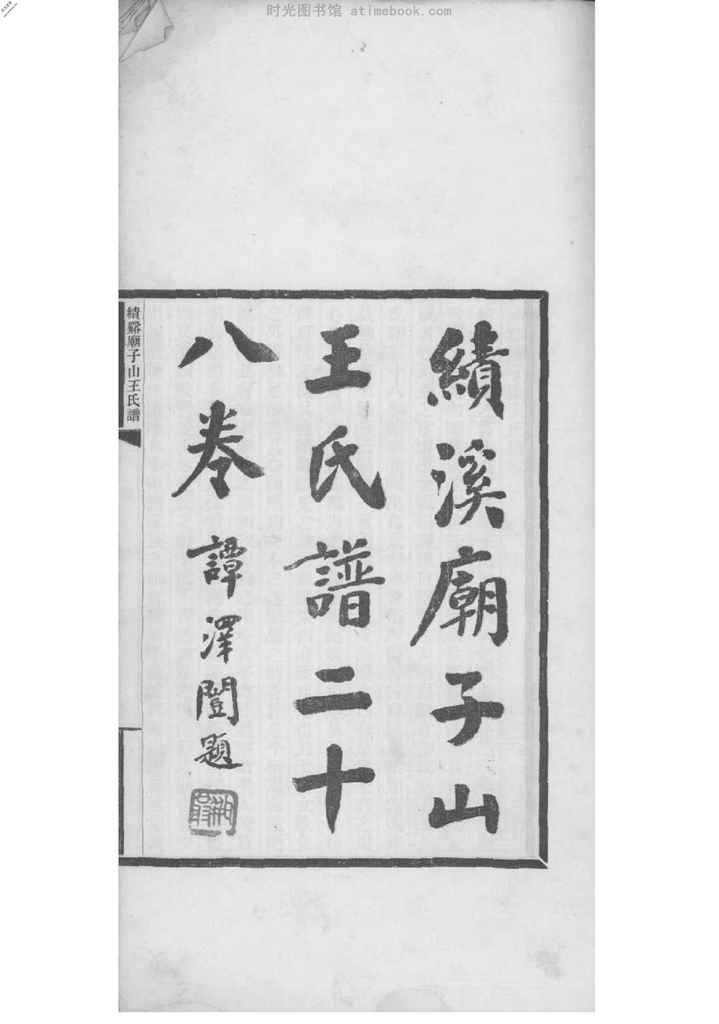 时光图书馆 atimebook.com
績溪廟子山
王氏譜二十
八卷 譚澤闓題
績谿廟子山王氏譜